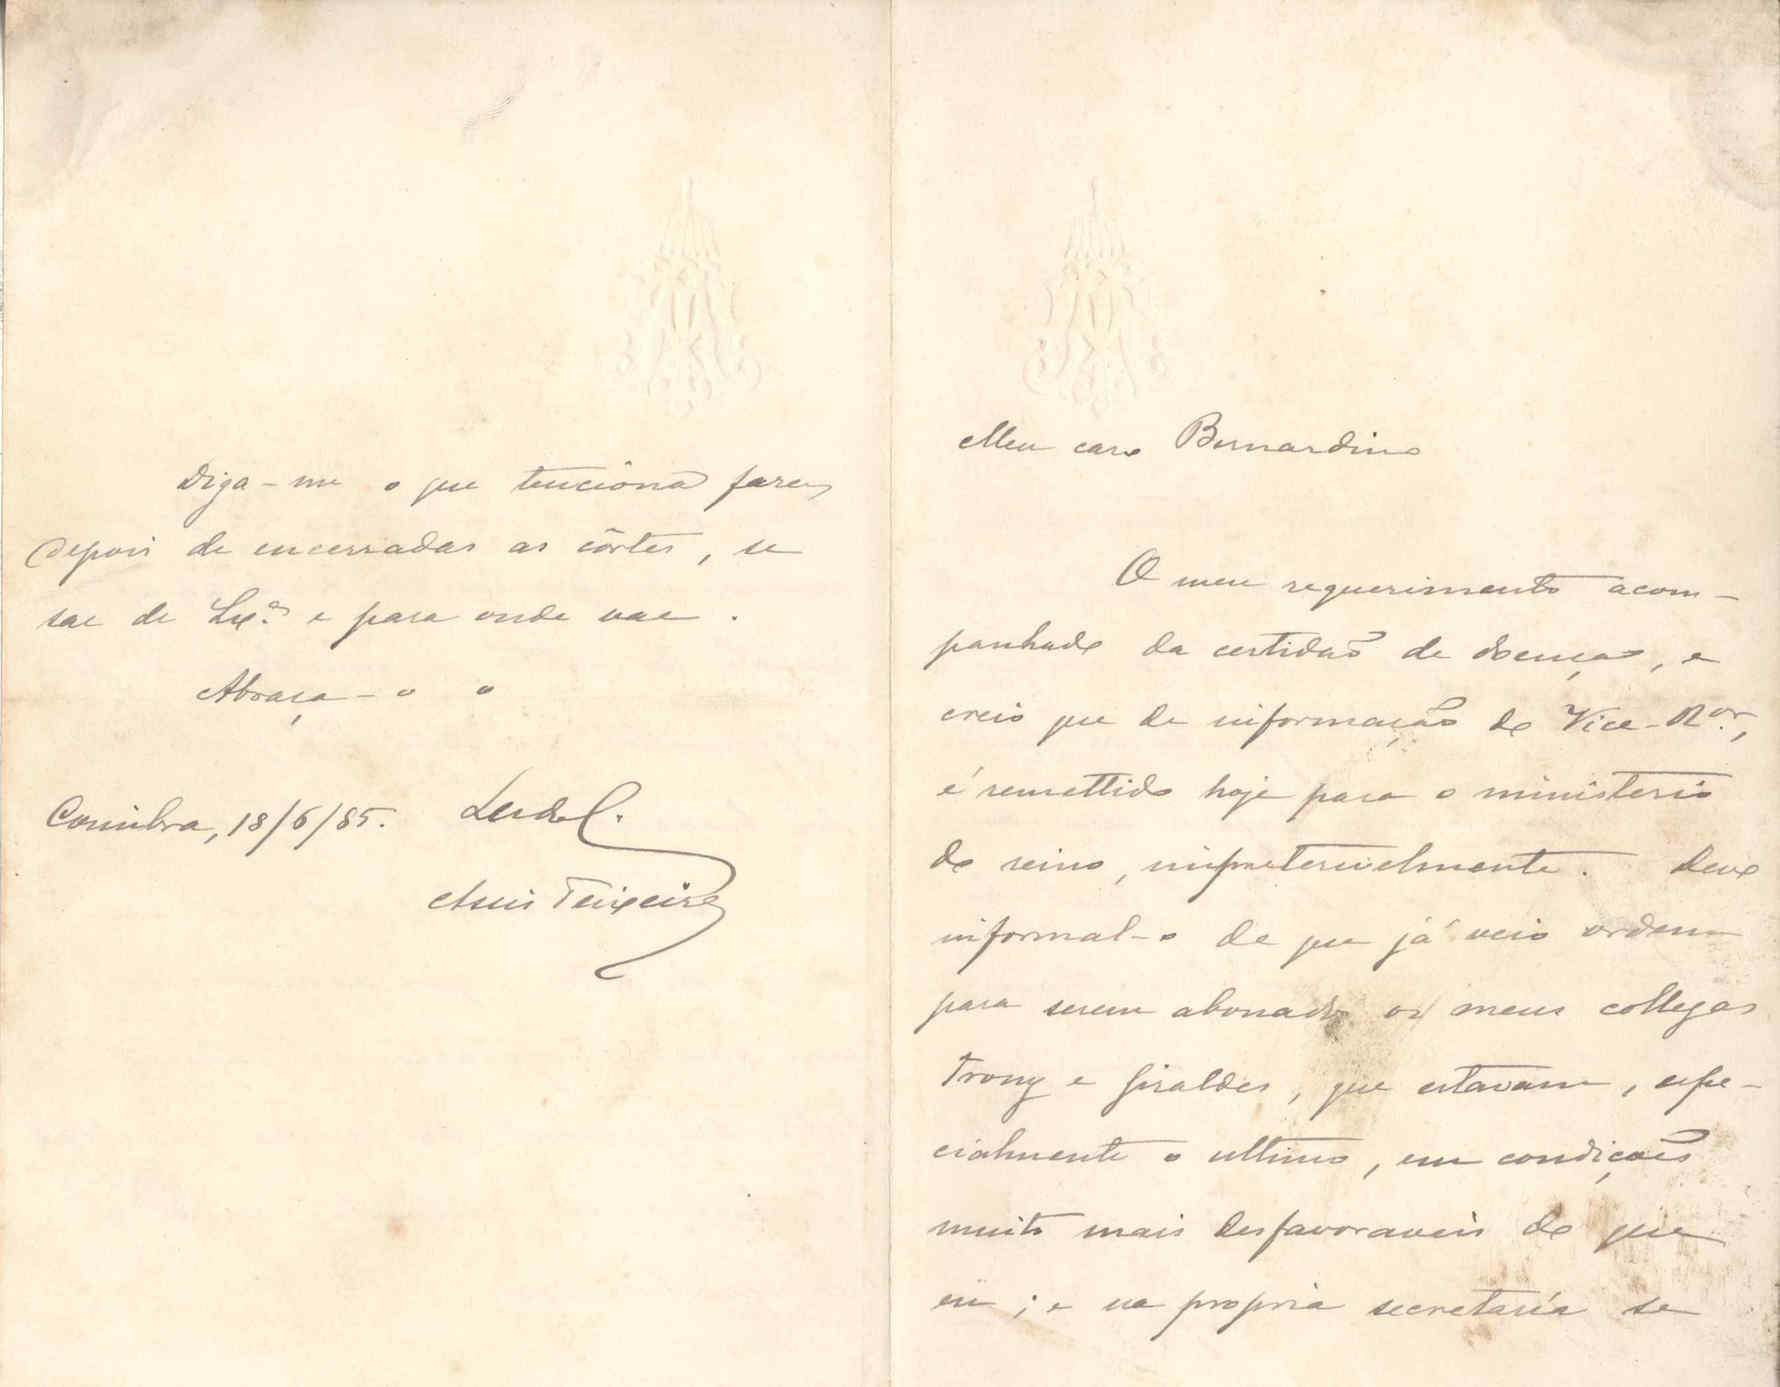 Meu caro Bernardino
O meu requerimento acom-
panhado da certidão de doença, e
creio que de informação do Vice-Ror,
é remettido hoje para o ministerio
do reino, impreterivelmente. Devo
informal-o de que já veio ordem
para serem abonados os meus collegas
Trony e Giraldes, que estavam, espe-
cialmente o ultimo, em condições
muito mais desfavoraveis do que
eu; e na propria secretaría se
Diga-me o que tenciona fazer
depois de encerradas as côrtes, se
sae de Lxª e para onde vae.
Abraça-o o
Coimbra, 18/6/85.
Assis Teixeira